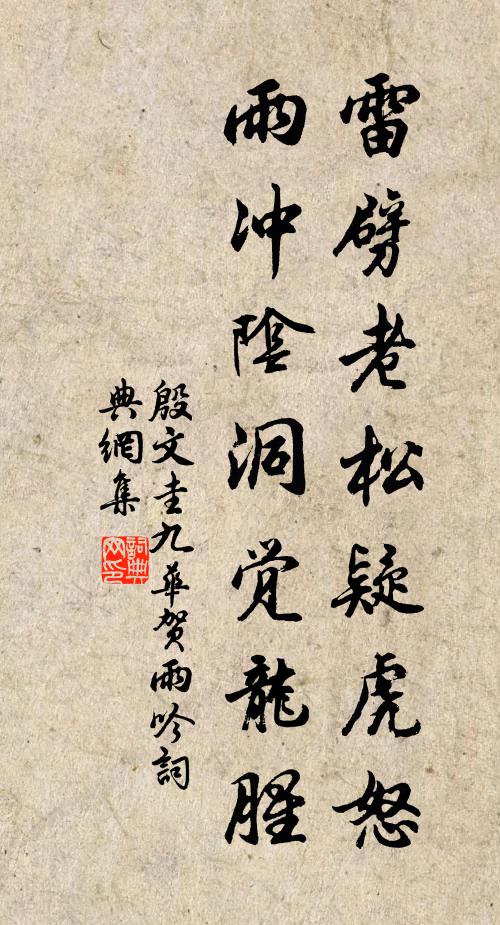 雷劈老松疑虎怒
雨冲陰洞觉龍腥
殷文圭九華賀雨吟詞
典網集
詞典
网印